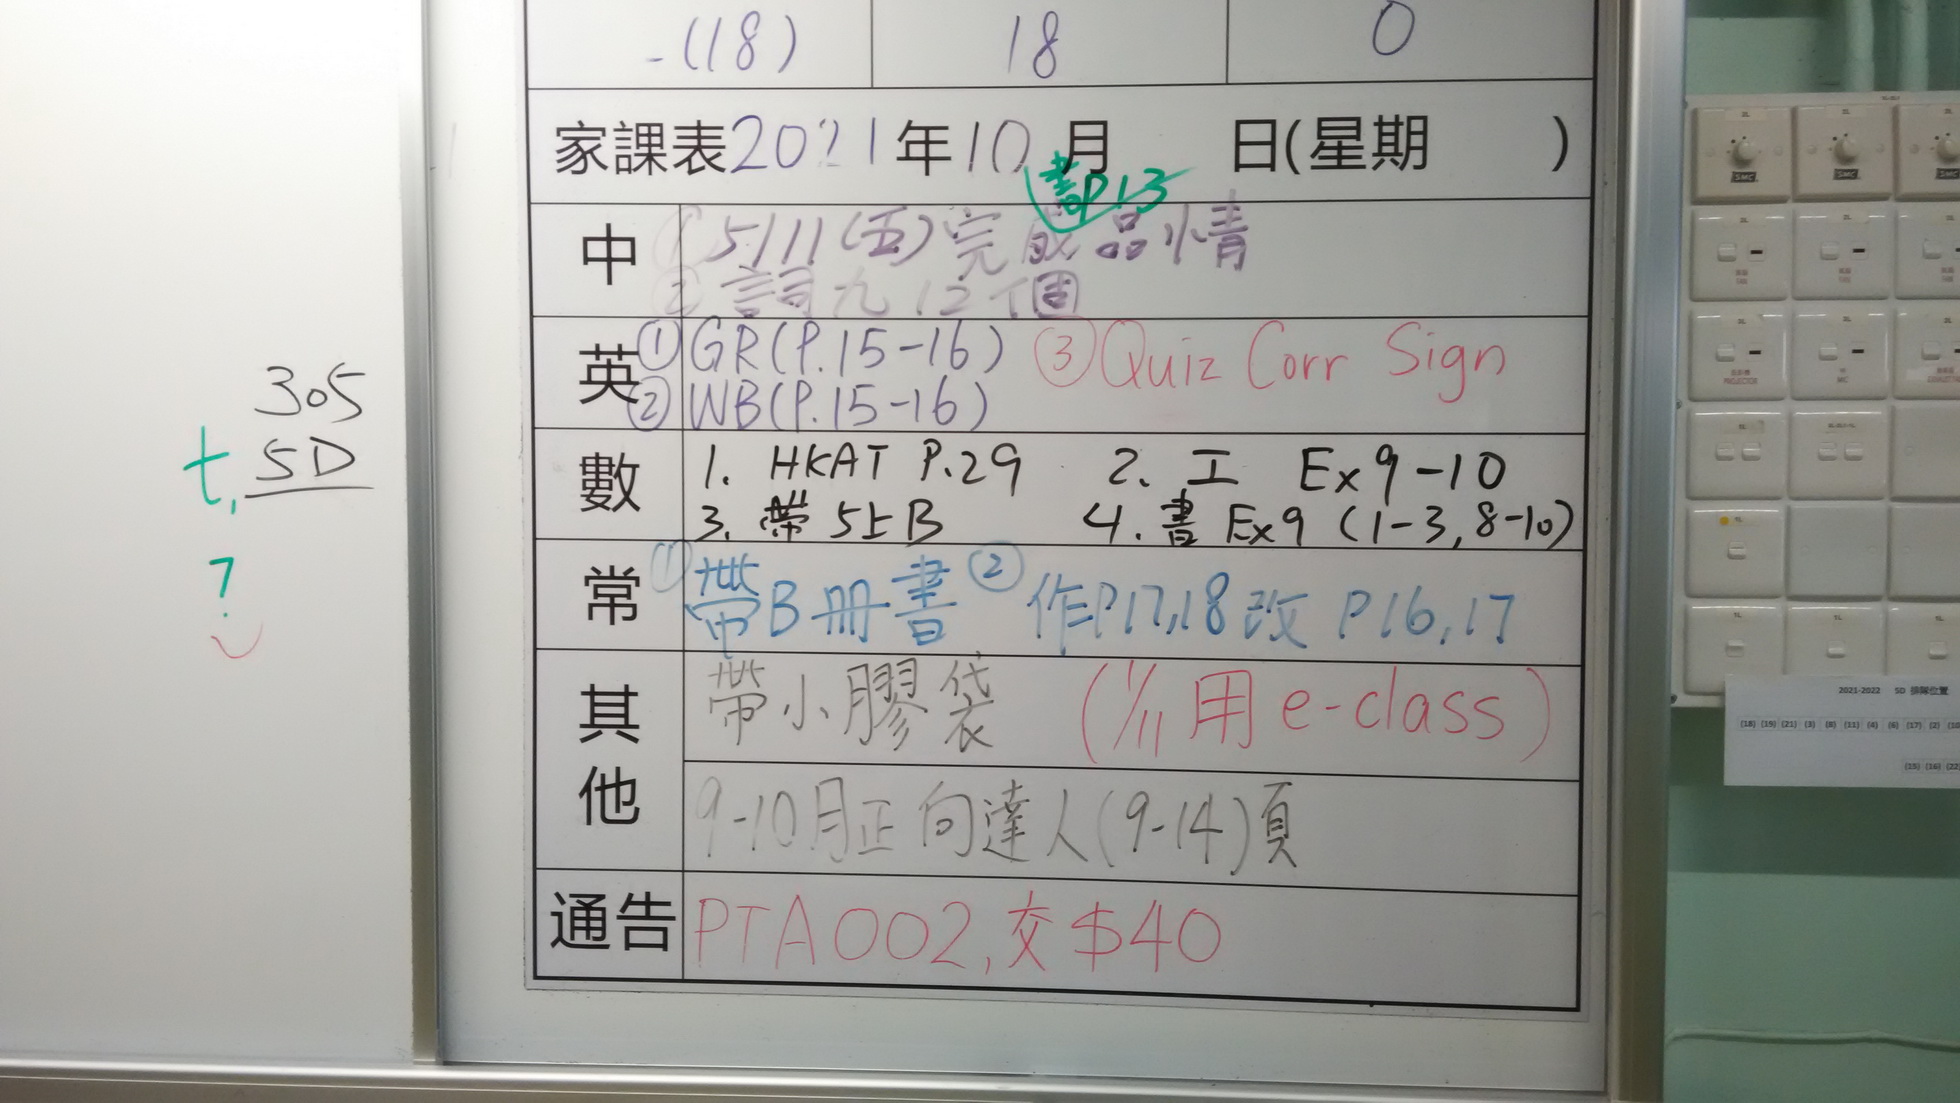 -(18) 18 0
家課表2021年10月 日(星期 )
書P13
中 ① 5/11(五)完成品情
② 詞九 12個
英 ① GR(P.15-16) ③ Quiz Corr Sign
② WB(P.15-16)
數 1. HKAT P.29 2. 工 Ex 9-10
3. 帶 5上B 4. 書 Ex9 (1-3, 8-10)
常 ① 帶B冊書 ② 作P17,18 改 P16,17
其他 帶小膠袋 (1/11 用 e-class)
9-10月正向達人(9-14)頁
通告 PTA002, 交$40
305
5D
t,
?
2021-2022 5D 排隊位置
(18) (19) (21) (3) (8) (11) (4) (6) (17) (2)
(15) (16) (22)
SMC SMC SMC
PROJECTOR